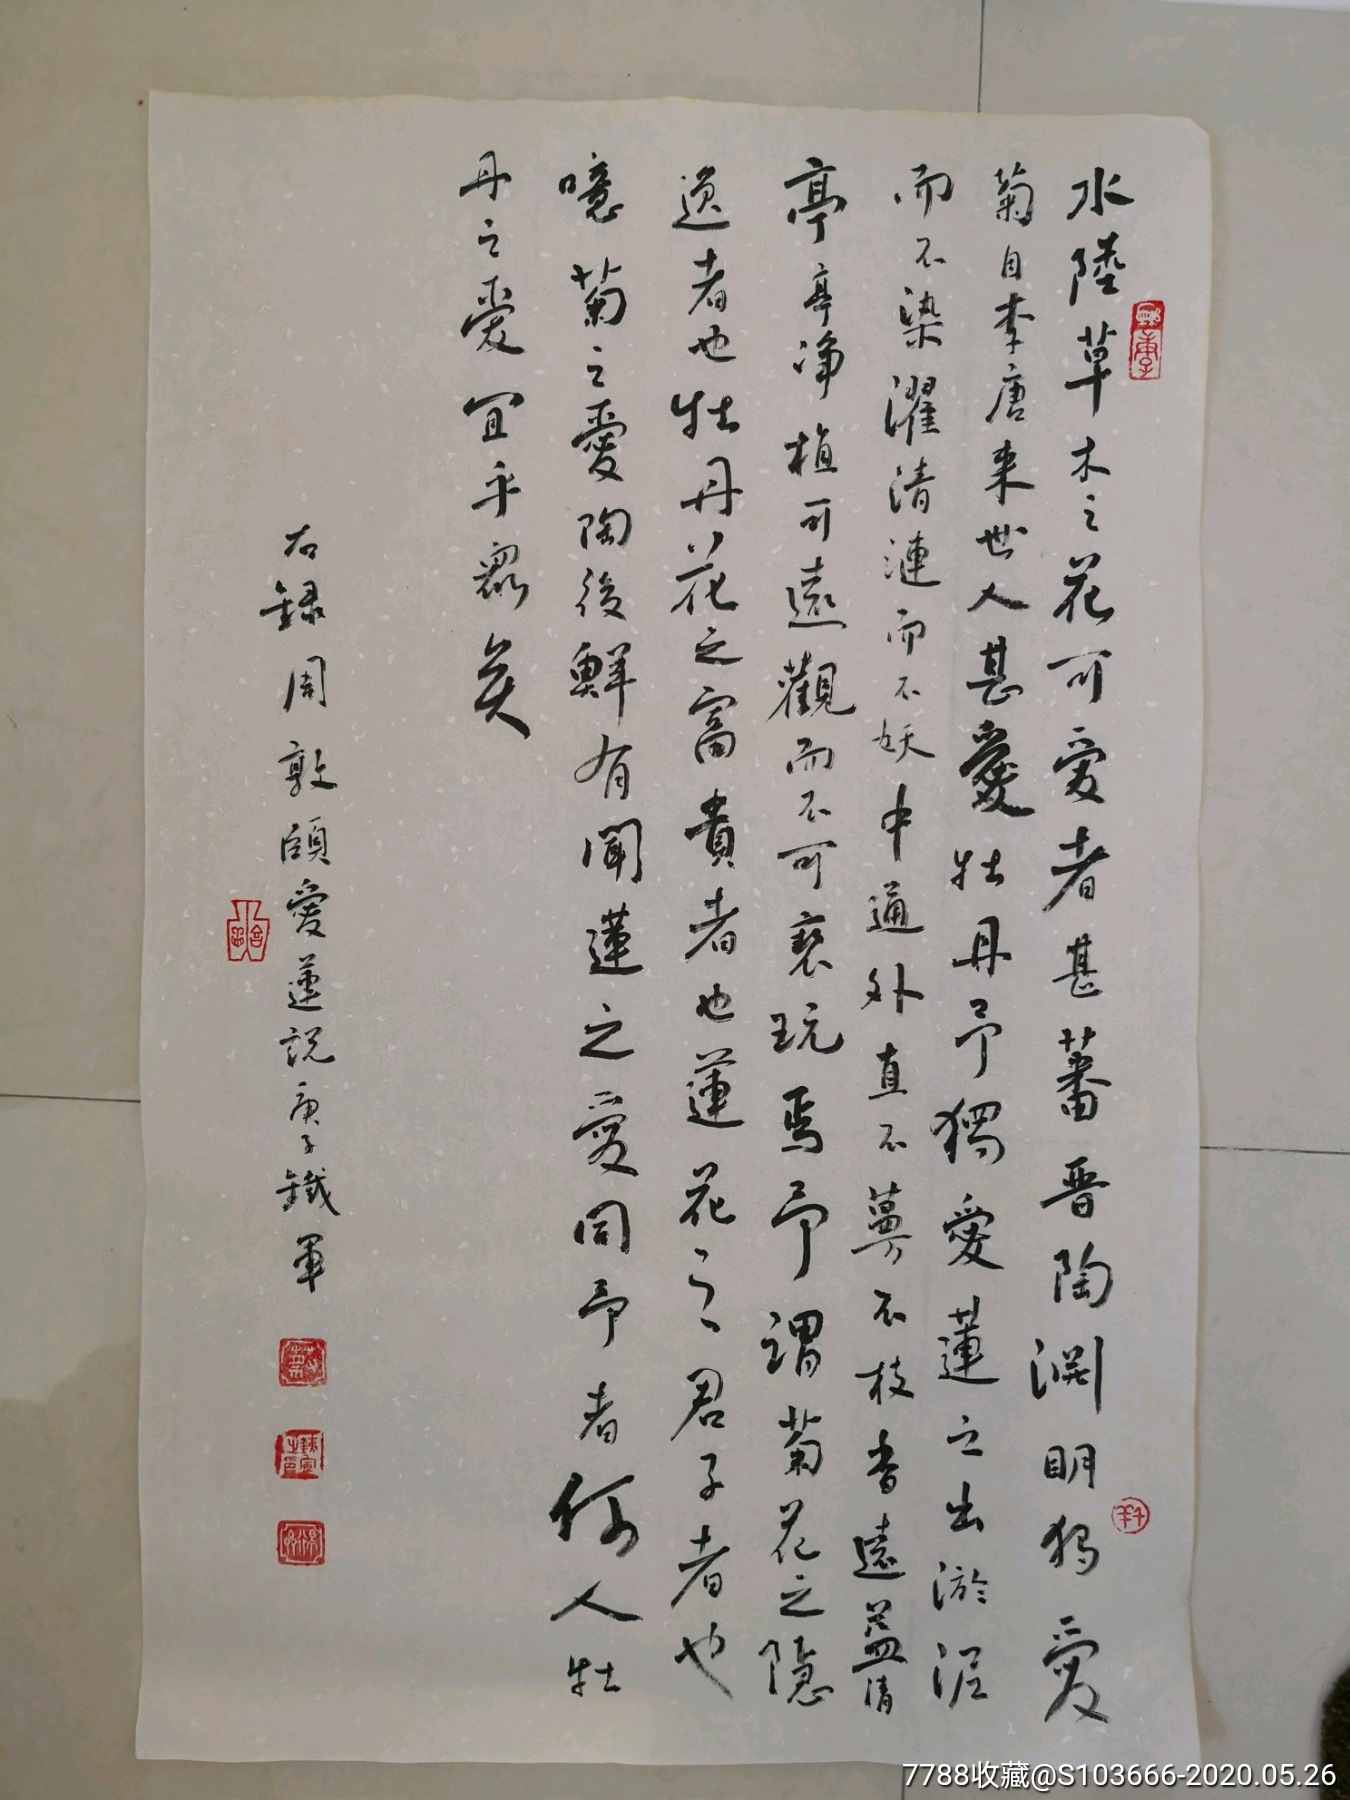 水陸草木之花可愛者甚蕃晋陶淵明獨愛
菊自李唐来世人甚愛牡丹予獨愛蓮之出淤泥
而不染濯清漣而不妖中通外直不蔓不枝香遠益清
亭亭净植可遠觀而不可褻玩焉予謂菊花之隱
逸者也牡丹花之富貴者也蓮花之君子者也
噫菊之愛陶後鮮有聞蓮之愛同予者何人牡
丹之愛宜乎眾矣
右録周敦頤愛蓮説庚子鐵軍
7788收藏@S103666-2020.05.26